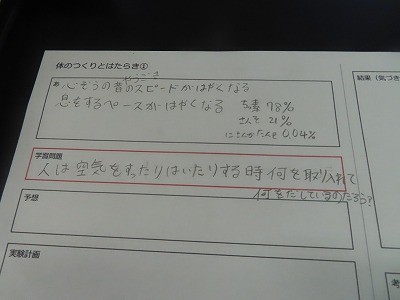 体のつくりとはたらき①
結果（気づき
あ 心ぞうの音のスピードがはやくなる
息をするペースがはやくなる
ちっ素 78%
さんそ 21%
にさんかたんそ 0.04%
学習問題
人は空気をすったりはいたりする時何を取り入れて
何をだしているのだろう?
予想
実験計画
考